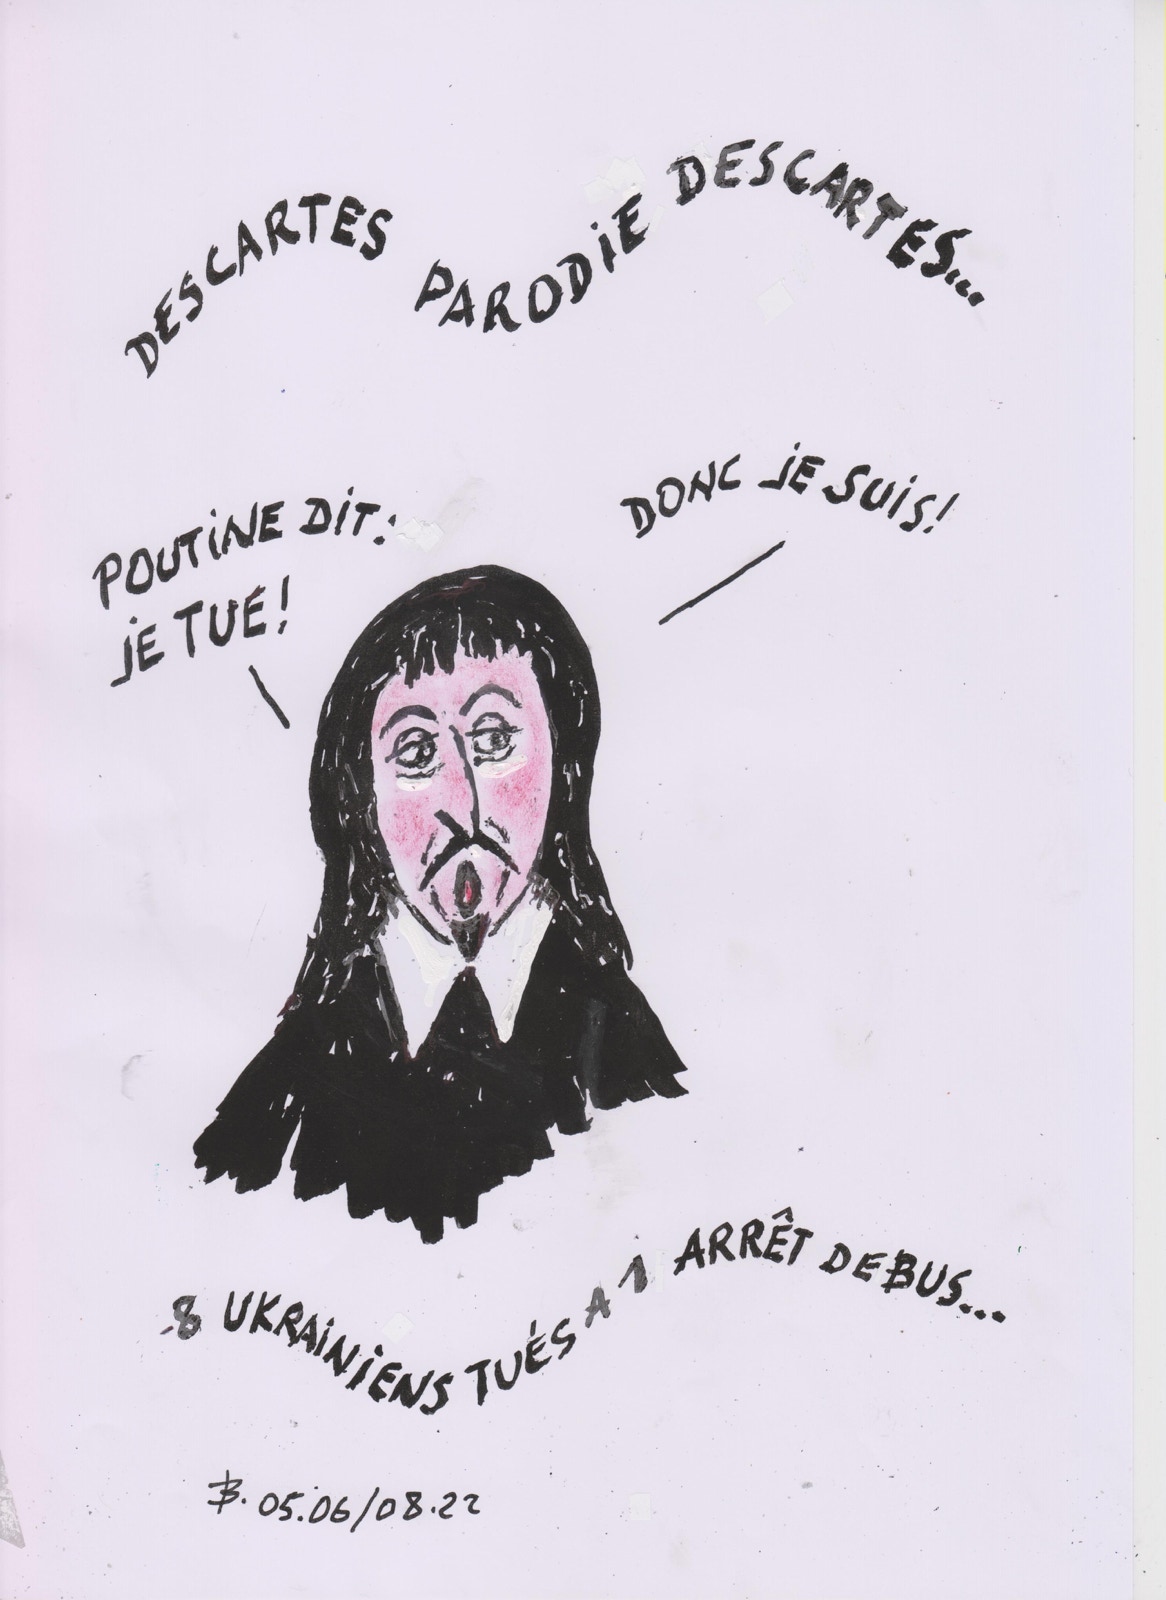 DESCARTES PARODIE DESCARTES...
POUTINE DIT:
JE TUE!
DONC JE SUIS!
8 UKRAINIENS TUÉS A 1 ARRÊT DE BUS...
B. 05.06/08.22